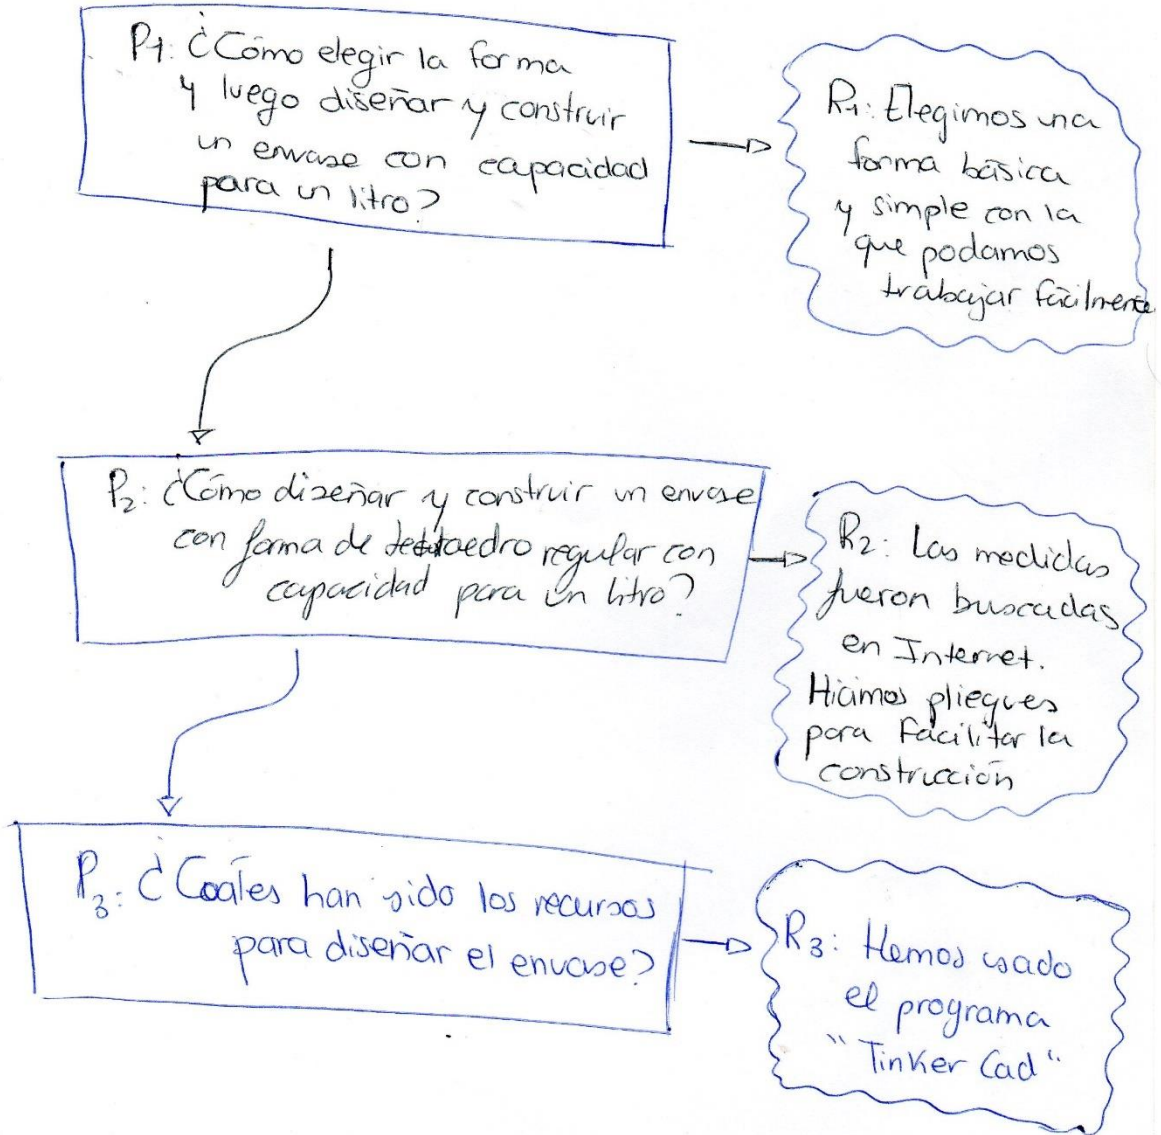 P1: ¿Cómo elegir la forma
y luego diseñar y construir
un envase con capacidad
para un litro?
R1: Elegimos una
forma básica
y simple con la
que podamos
trabajar fácilmente
P2: ¿Cómo diseñar y construir un envase
con forma de tetraedro regular con
capacidad para un litro?
R2: Las medidas
fueron buscadas
en Internet.
Hicimos pliegues
para facilitar la
construcción
P3: ¿Cuáles han sido los recursos
para diseñar el envase?
R3: Hemos usado
el programa
"Tinker Cad"